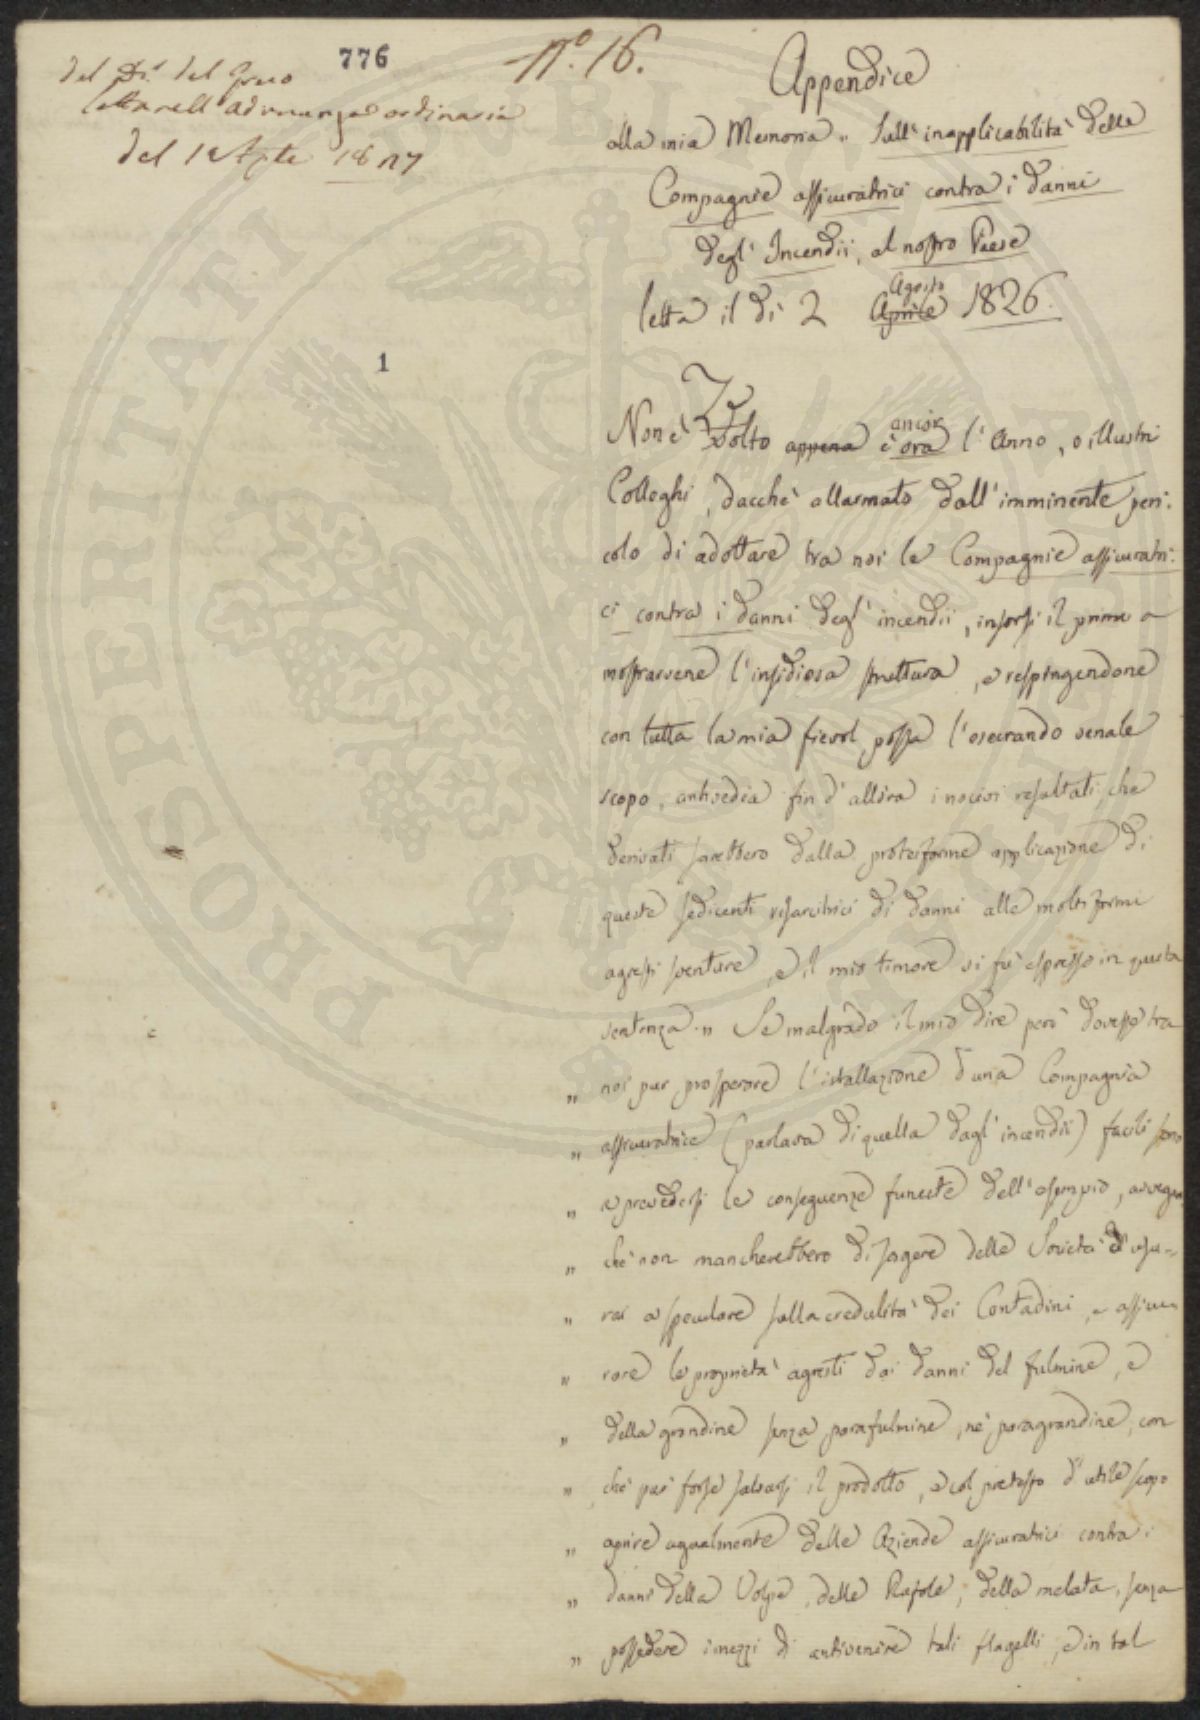 776
del Sig. del Greco
letta nell'adunanza ordinaria
del 1827
N.º 16.
Appendice
alla mia Memoria „ Sull'inapplicabilità delle
Compagnie assicuratrici contra i danni
degl'Incendii, al nostro Paese
letta il dì 2 Aprile Agosto 1826.
1
Non è volto appena è ora ancor l'Anno, o illustri
Colleghi, dacchè allarmato dall'imminente peri-
colo di adottare tra noi le Compagnie assicuratri-
ci contra i danni degl'incendii, insorsi il primo a
mostrarvene l'insidiosa struttura, e respingendone
con tutta la mia fievol possa l'esecrando venale
scopo, antivedia fin d'allora i nocivi resultati che
derivati sarebbero dalla proteiforme applicazione di
queste sedicenti risarcitrici di danni alle moltiformi
agresti sventure, e il mio timore vi fu espresso in questa
sentenza. „ Se malgrado il mio dire però dovesse tra
„ noi pur prosperare l'istallazione d'una Compagnia
„ assicuratrice (parlava di quella dagl'incendii) facili sono
„ a prevedersi le conseguenze funeste dell'esempio, avvegna
„ chè non mancherebbero di sagere delle Società d'usu-
„ rai a speculare sulla credulità dei Contadini, e assicu-
„ rare le proprietà agresti dai danni del fulmine, e
„ della grandine senza parafulmine, nè paragrandine, con
„ che può forse salvarsi il prodotto, e col pretesto d'utile scopo
„ aprire egualmente delle Aziende assicuratrici contra i
„ danni della Volpe, delle Rufole, della melata, senza
„ possedere i mezzi di antivenire tali flagelli, e in tal
PROSPERITATI PUBLICAE AUGENDAE